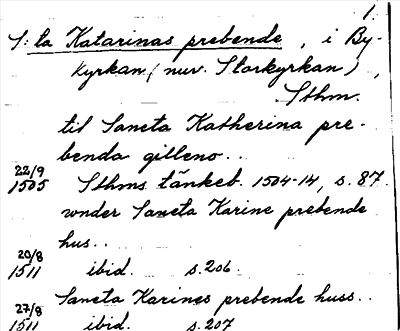 1.
S:ta Katarinas prebende, i By-
kyrkan (nuv. Storkyrkan),
Sthm.
til Sancta Katherina pre-
benda gilleno..
22/9
1505 Sthms tänkeb. 1504-14, s. 87.
wnder Sancta Karine prebende
hus..
20/8
1511 ibid. s. 206.
Sancta Karines prebende huss..
27/8
1511 ibid. s. 207